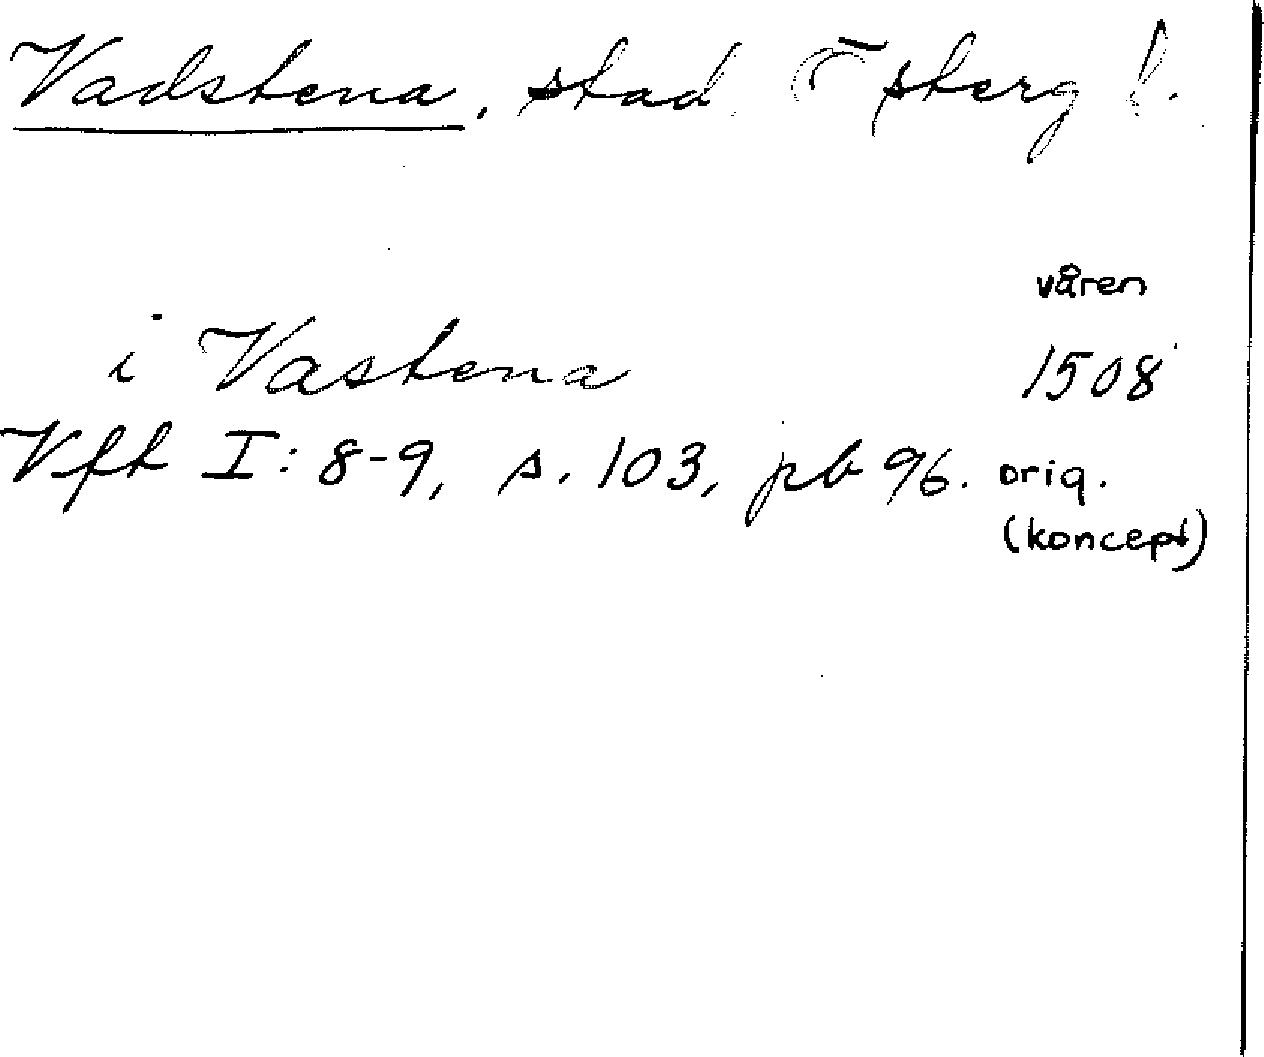 Vadstena, stad Östergl.
våren
i Vastena 1508
Vft I: 8-9, s. 103, pb 96. orig.
(koncept)